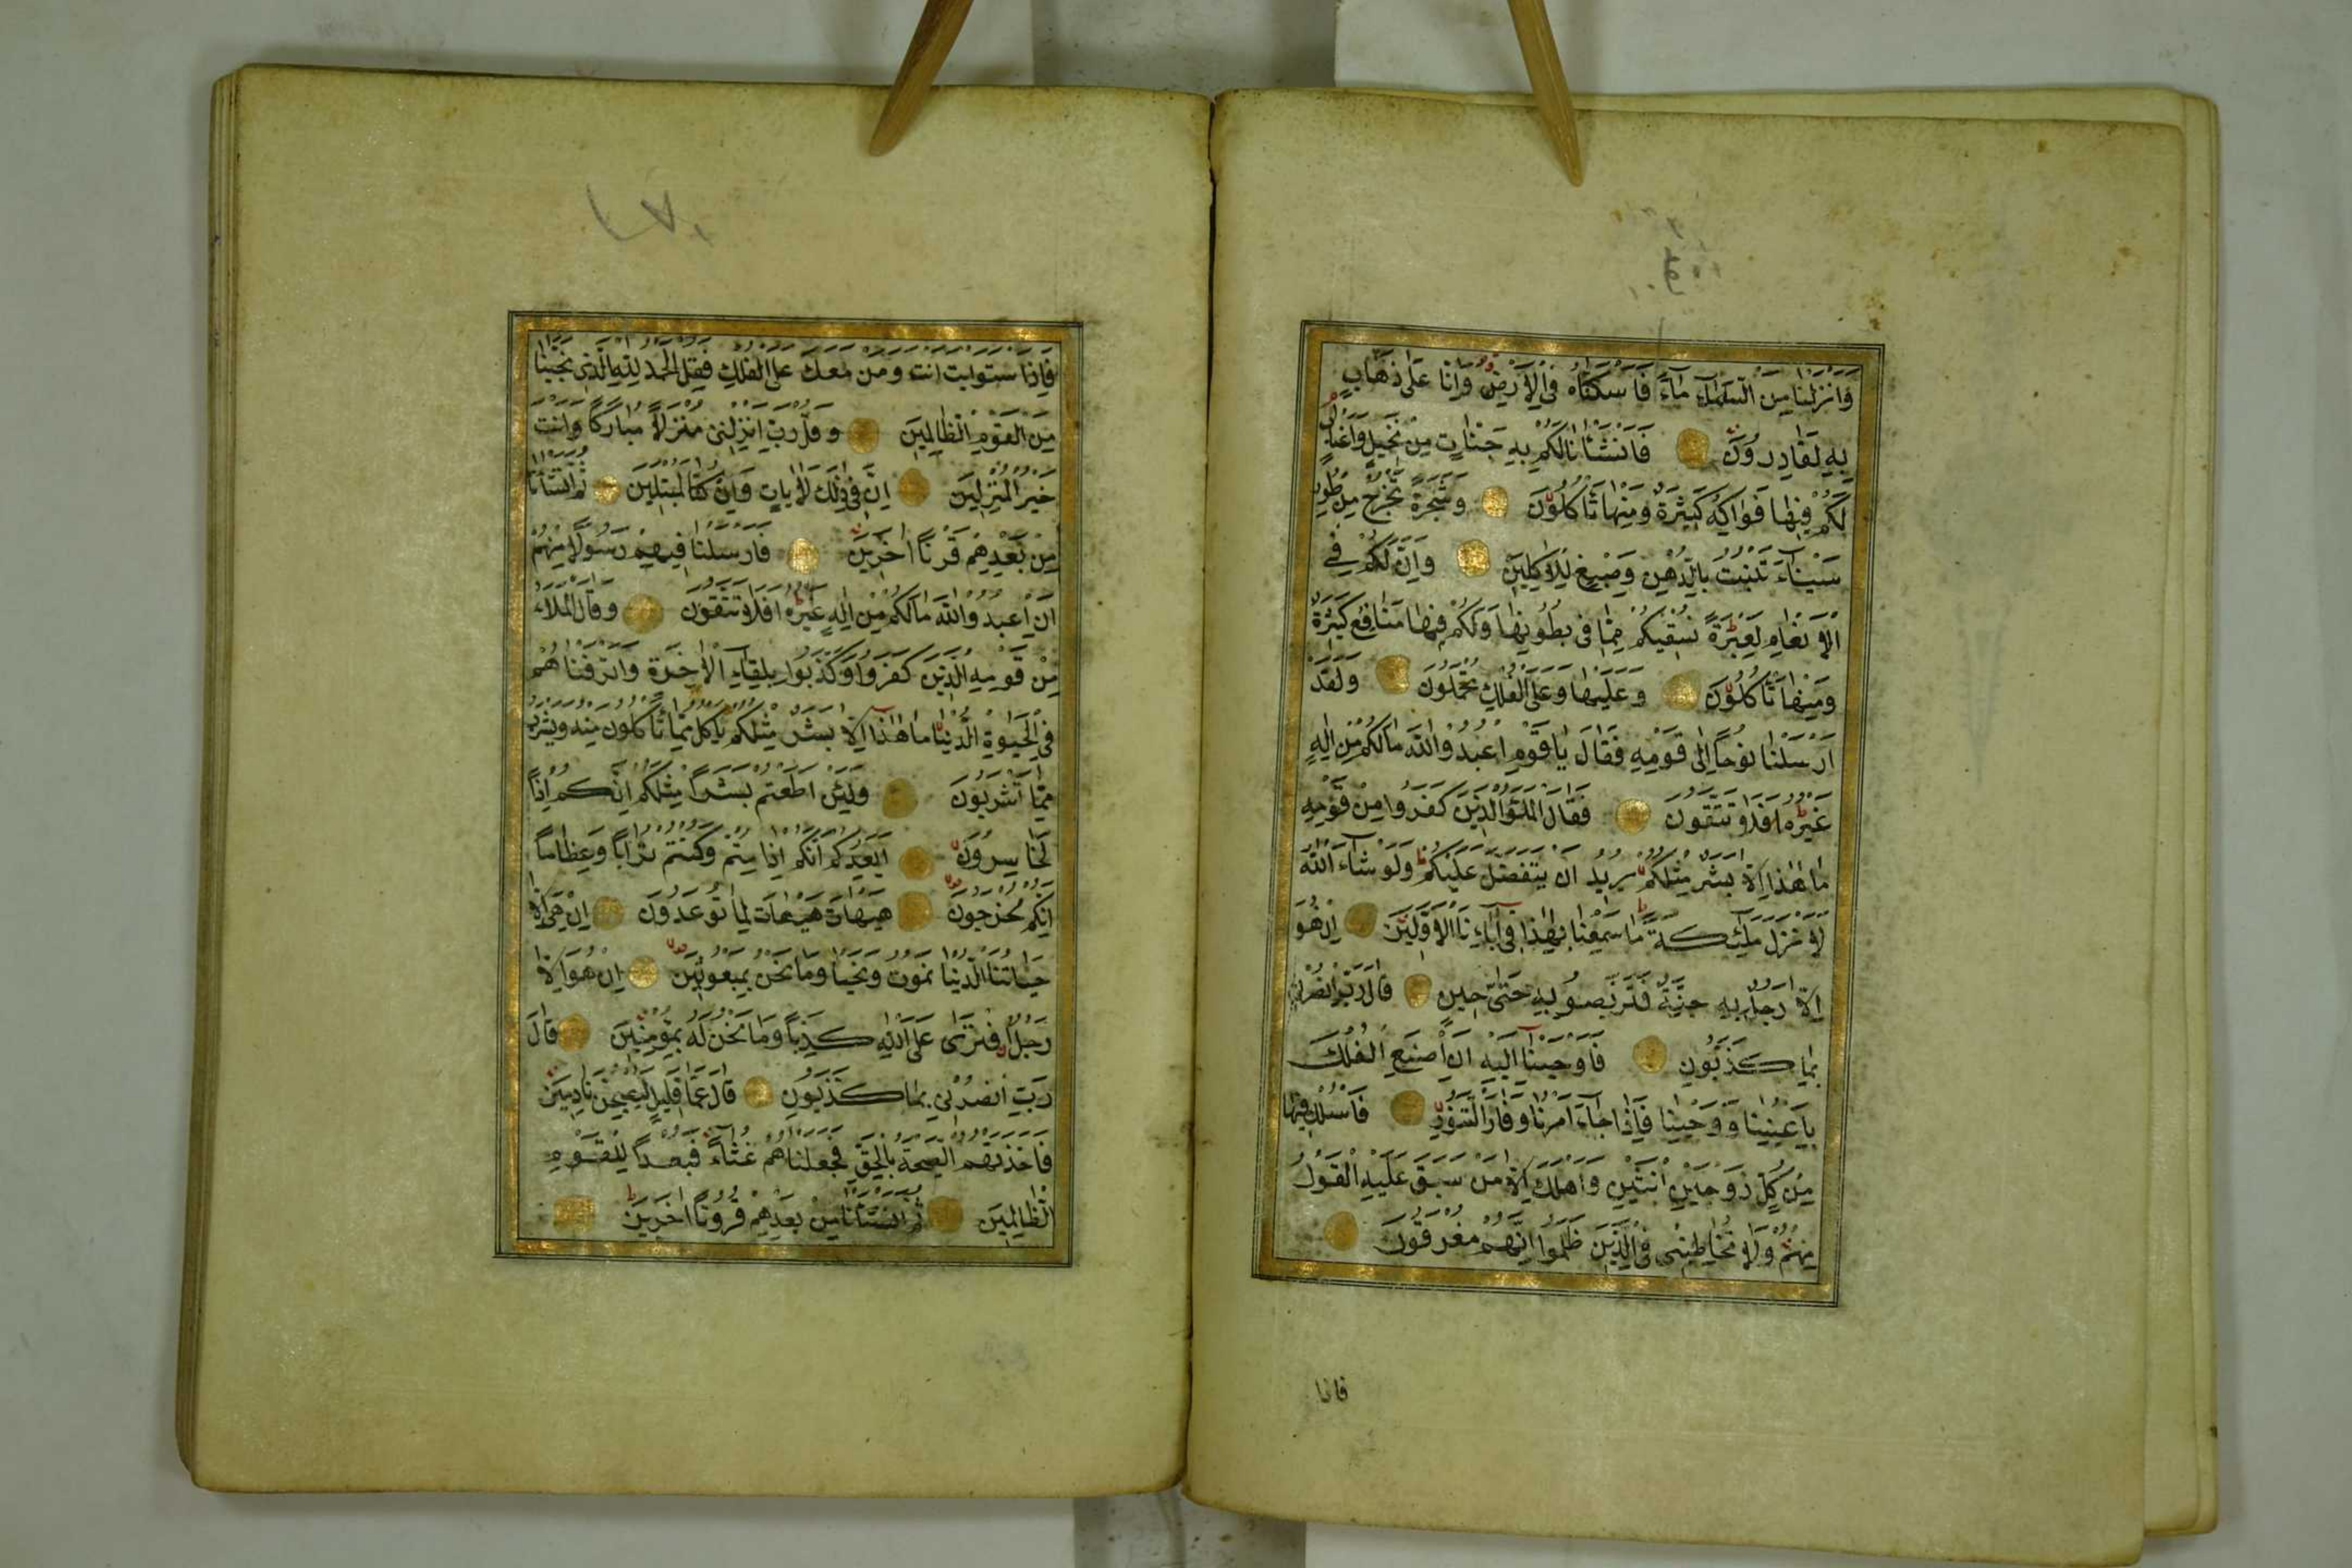 وَاَنْزَلْنَا مِنَ السَّمَاءِ مَاءً فَاَسْكَنَّاهُ فِي الْاَرْضِ وَاِنَّا عَلٰى ذَهَابٍ
بِهِ لَقَادِرُونَ فَاَنْشَأْنَا لَكُمْ بِهِ جَنَّاتٍ مِنْ نَخِيلٍ وَاَعْنَابٍ
لَكُمْ فِيهَا فَوَاكِهُ كَثِيرَةٌ وَمِنْهَا تَأْكُلُونَ وَشَجَرَةً تَخْرُجُ مِنْ طُورِ
سَيْنَاءَ تَنْبُتُ بِالدُّهْنِ وَصِبْغٍ لِلْاٰكِلِينَ وَاِنَّ لَكُمْ فِي
الْاَنْعَامِ لَعِبْرَةً نُسْقِيكُمْ مِمَّا فِي بُطُونِهَا وَلَكُمْ فِيهَا مَنَافِعُ كَثِيرَةٌ
وَمِنْهَا تَأْكُلُونَ وَعَلَيْهَا وَعَلَى الْفُلْكِ تُحْمَلُونَ وَلَقَدْ
اَرْسَلْنَا نُوحًا اِلٰى قَوْمِهِ فَقَالَ يَا قَوْمِ اعْبُدُوا اللّٰهَ مَا لَكُمْ مِنْ اِلٰهٍ
غَيْرُهُ اَفَلَا تَتَّقُونَ فَقَالَ الْمَلَؤُا الَّذِينَ كَفَرُوا مِنْ قَوْمِهِ
مَا هٰذَا اِلَّا بَشَرٌ مِثْلُكُمْ يُرِيدُ اَنْ يَتَفَضَّلَ عَلَيْكُمْ وَلَوْ شَاءَ اللّٰهُ
لَاَنْزَلَ مَلٰئِكَةً مَا سَمِعْنَا بِهٰذَا فِي اٰبَاءِنَا الْاَوَّلِينَ اِنْ هُوَ
اِلَّا رَجُلٌ بِهِ جِنَّةٌ فَتَرَبَّصُوا بِهِ حَتّٰى حِينٍ قَالَ رَبِّ انْصُرْنِي
بِمَا كَذَّبُونِ فَاَوْحَيْنَا اِلَيْهِ اَنِ اصْنَعِ الْفُلْكَ
بِاَعْيُنِنَا وَوَحْيِنَا فَاِذَا جَاءَ اَمْرُنَا وَفَارَ التَّنُّورُ فَاسْلُكْ فِيهَا
مِنْ كُلٍّ زَوْجَيْنِ اثْنَيْنِ وَاَهْلَكَ اِلَّا مَنْ سَبَقَ عَلَيْهِ الْقَوْلُ
مِنْهُمْ وَلَا تُخَاطِبْنِي فِي الَّذِينَ ظَلَمُوا اِنَّهُمْ مُغْرَقُونَ
فاذا
فَاِذَا اسْتَوَيْتَ اَنْتَ وَمَنْ مَعَكَ عَلَى الْفُلْكِ فَقُلِ الْحَمْدُ لِلّٰهِ الَّذِي نَجّٰينَا
مِنَ الْقَوْمِ الظَّالِمِينَ وَقُلْ رَبِّ اَنْزِلْنِي مُنْزَلًا مُبَارَكًا وَاَنْتَ
خَيْرُ الْمُنْزِلِينَ اِنَّ فِي ذٰلِكَ لَاٰيَاتٍ وَاِنْ كُنَّا لَمُبْتَلِينَ ثُمَّ اَنْشَأْنَا
مِنْ بَعْدِهِمْ قَرْنًا اٰخَرِينَ فَاَرْسَلْنَا فِيهِمْ رَسُولًا مِنْهُمْ
اَنِ اعْبُدُوا اللّٰهَ مَا لَكُمْ مِنْ اِلٰهٍ غَيْرُهُ اَفَلَا تَتَّقُونَ وَقَالَ الْمَلَاءُ
مِنْ قَوْمِهِ الَّذِينَ كَفَرُوا وَكَذَّبُوا بِلِقَاءِ الْاٰخِرَةِ وَاَتْرَفْنَاهُمْ
فِي الْحَيٰوةِ الدُّنْيَا مَا هٰذَا اِلَّا بَشَرٌ مِثْلُكُمْ يَأْكُلُ مِمَّا تَأْكُلُونَ مِنْهُ وَيَشْرَبُ
مِمَّا تَشْرَبُونَ وَلَئِنْ اَطَعْتُمْ بَشَرًا مِثْلَكُمْ اِنَّكُمْ اِذًا
لَخَاسِرُونَ اَيَعِدُكُمْ اَنَّكُمْ اِذَا مِتُّمْ وَكُنْتُمْ تُرَابًا وَعِظَامًا
اَنَّكُمْ مُخْرَجُونَ هَيْهَاتَ هَيْهَاتَ لِمَا تُوعَدُونَ اِنْ هِيَ اِلَّا
حَيَاتُنَا الدُّنْيَا نَمُوتُ وَنَحْيَا وَمَا نَحْنُ بِمَبْعُوثِينَ اِنْ هُوَ اِلَّا
رَجُلٌ افْتَرٰى عَلَى اللّٰهِ كَذِبًا وَمَا نَحْنُ لَهُ بِمُؤْمِنِينَ قَالَ
رَبِّ انْصُرْنِي بِمَا كَذَّبُونِ قَالَ عَمَّا قَلِيلٍ لَيُصْبِحُنَّ نَادِمِينَ
فَاَخَذَتْهُمُ الصَّيْحَةُ بِالْحَقِّ فَجَعَلْنَاهُمْ غُثَاءً فَبُعْدًا لِلْقَوْمِ
الظَّالِمِينَ ثُمَّ اَنْشَأْنَا مِنْ بَعْدِهِمْ قُرُونًا اٰخَرِينَ